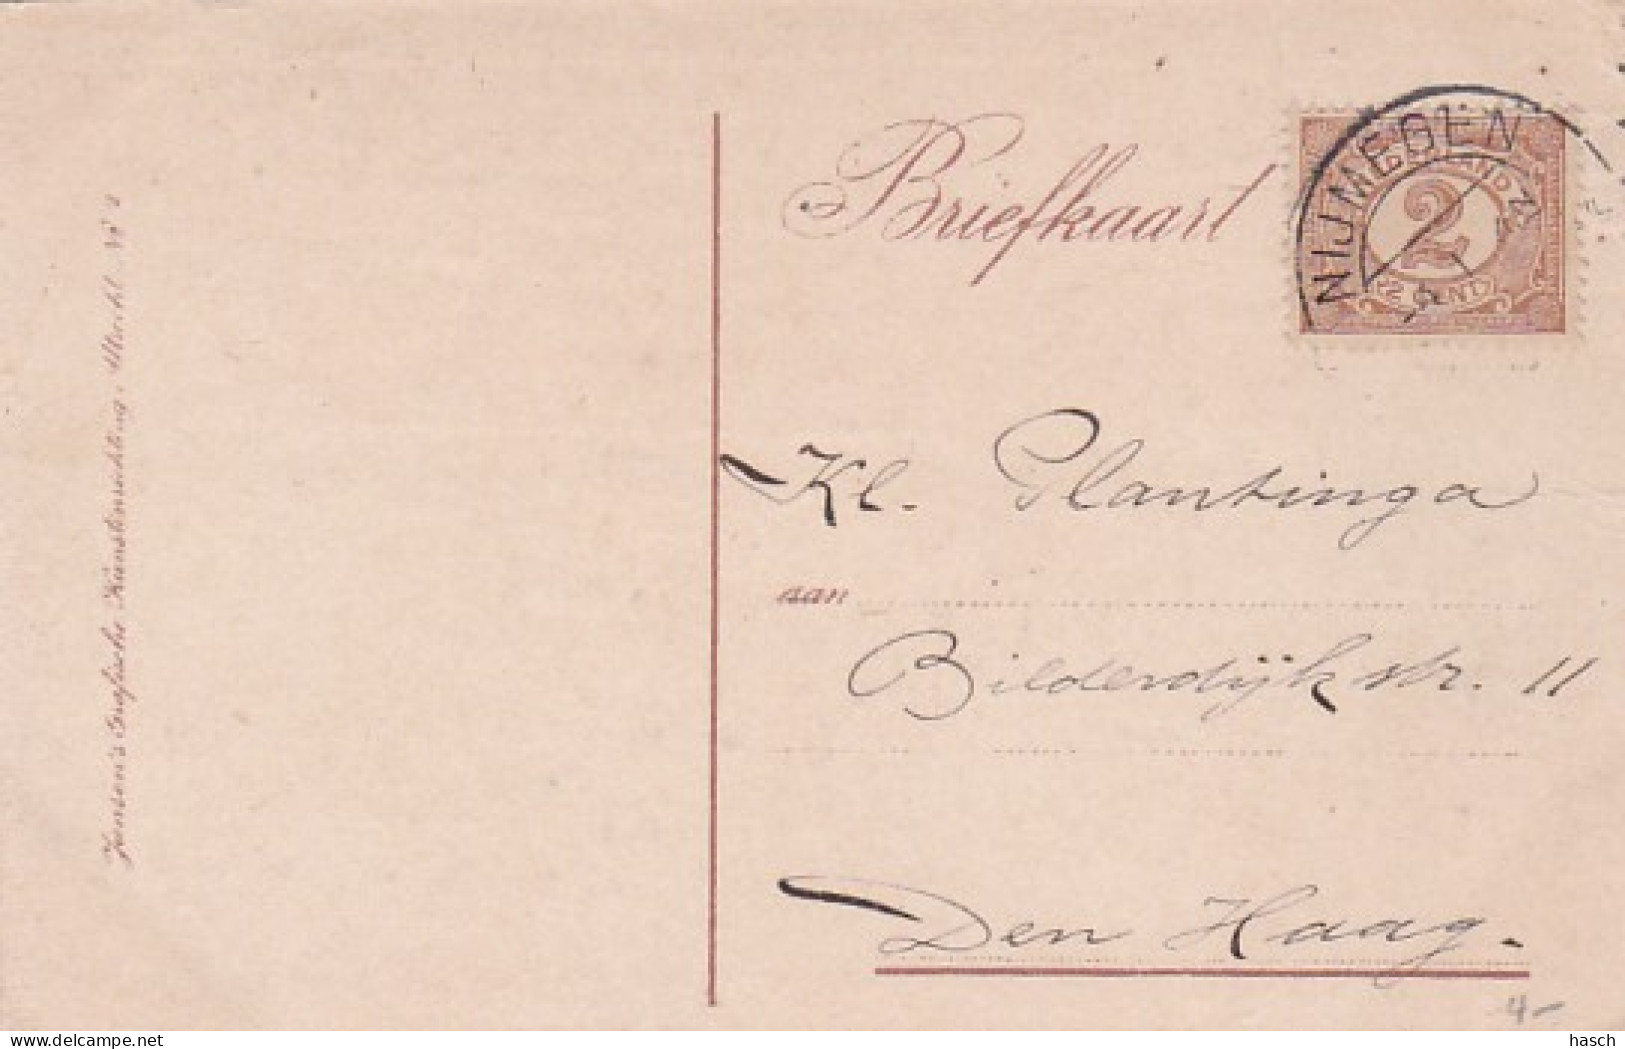 Briefkaart
NIJMEGEN
2
2 CENT
Kl. Plantinga
aan
Bilderdijkstr. 11
Den Haag.
Grafische Kunstinrichting, Utrecht
4-
delcampe.net
hasch